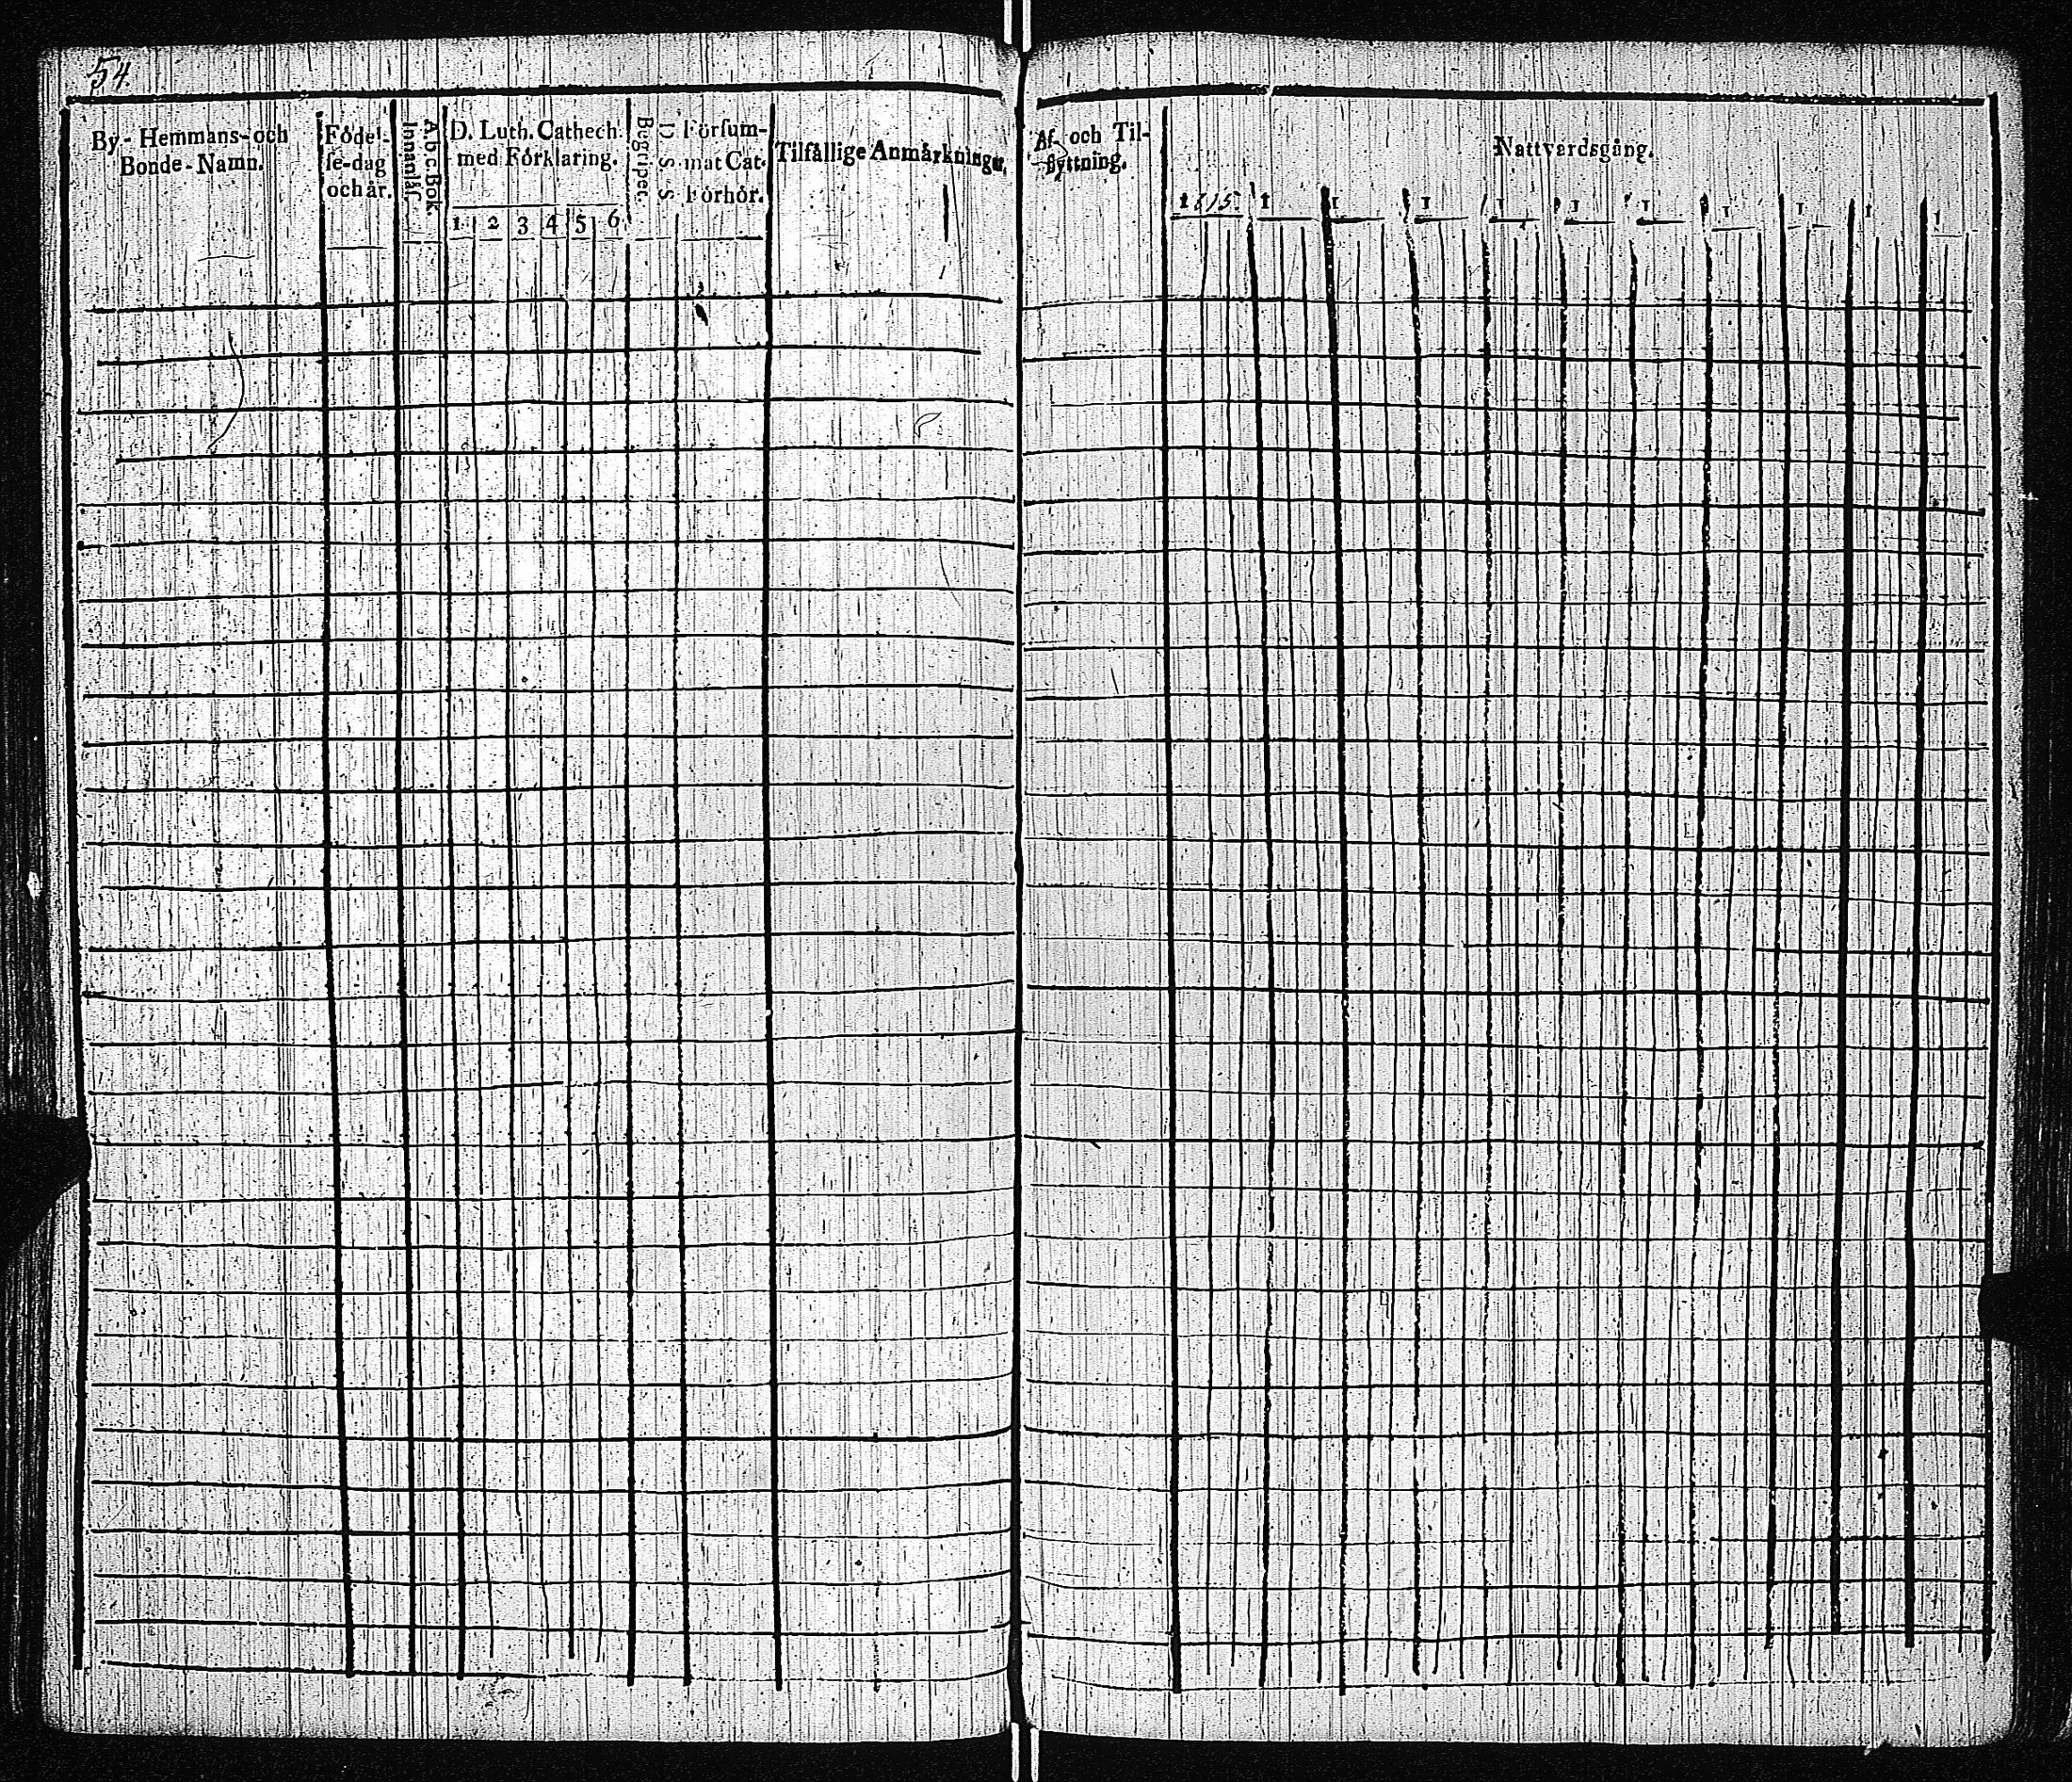 54
By- Hemmans- och
Bonde-Namn.
Födel-
se-dag
och år.
Abc Bok.
Innanläs.
D. Luth. Cathech.
med Förklaring.
1 2 3 4 5 6
Begriper.
Försum-
mat Cat.
Förhör.
Tilfällige Anmärkningar.
Af- och Til-
flyttning.
Nattvardsgång.
1815. 1 1 1 1 1 1 1 1 1 1